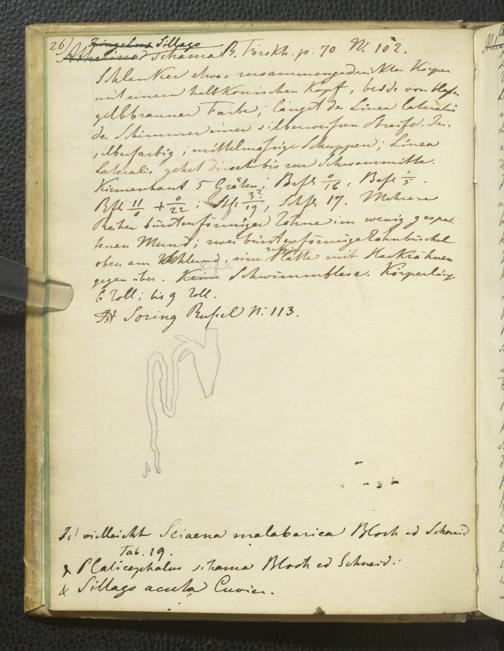 26) Sillago
Schama B. Forskh. p. 70 N. 102.
Schlanker etwas zusammengedrückter Körper
mit einem halbkonischen Kopf, beide von
gelbbrauner Farbe; längst der Linea lateralis
der Schimmer eines silberweissen Streifs. Iris
silberfarbig; mittelmäsige Schuppen; Linea
lateralis gehet direct bis zur Schwanzmitte.
Kiemenhaut 5 Gräten; Brfl 0/16, Bafl 1/5.
Rfl 11/0 + 0/22; Afl 19, Schfl 17. Mehrere
Reihen bürstenförmiger Zähne im wenig gespal-
tenen Mund; zwei bürstenförmige Zahnbüschel
oben am Schlund, eine Platte mit
gegen über. Keine Schwimmblase. Körperläng
6 Zoll; bis 9 Zoll.
Ist Soring Russel N. 113.
Ist vielleicht Sciaena malabarica Bloch ed Schneid
Tab. 19.
& Platicephalus schama Bloch ed Schneid:
& Sillago acuta Cuvier.